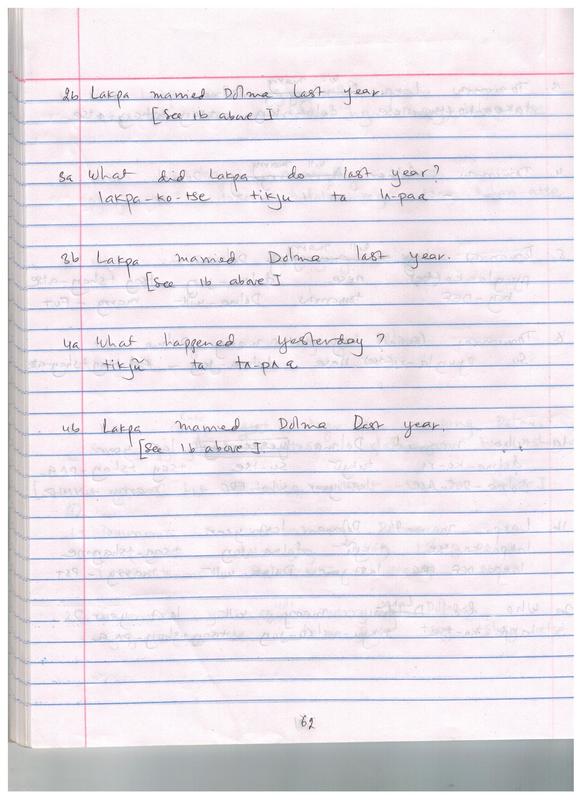 2b Lakpa married Dolma last year.
[See 1b above]
3a What did Lakpa do last year?
lakpa-ko-tse tikju ta lʌ-paa
3b Lakpa married Dolma last year.
[See 1b above]
4a What happened yesterday?
tikjũ ta tʌ-pʌ a
4b Lakpa married Dolma Dast year.
[See 1b above]
62